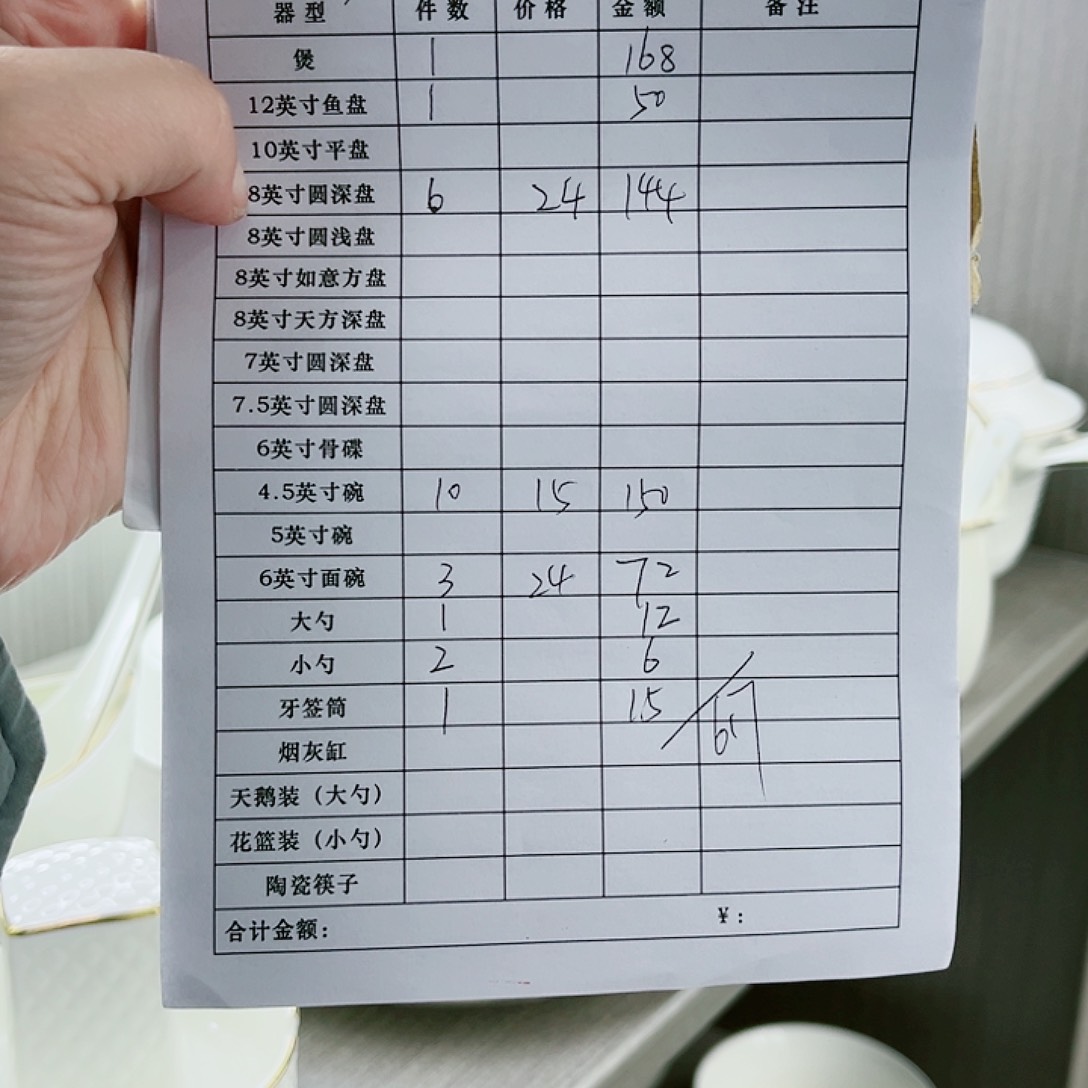 器型 件数 价格 金额 备注
煲 1 168
12英寸鱼盘 1 50
10英寸平盘
8英寸圆深盘 6 24 144
8英寸圆浅盘
8英寸如意方盘
8英寸天方深盘
7英寸圆深盘
7.5英寸圆深盘
6英寸骨碟
4.5英寸碗 10 15 150
5英寸碗
6英寸面碗 3 24 72
大勺 1 12
小勺 2 6
牙签筒 1 15
617
烟灰缸
天鹅装（大勺）
花篮装（小勺）
陶瓷筷子
合计金额： ¥：